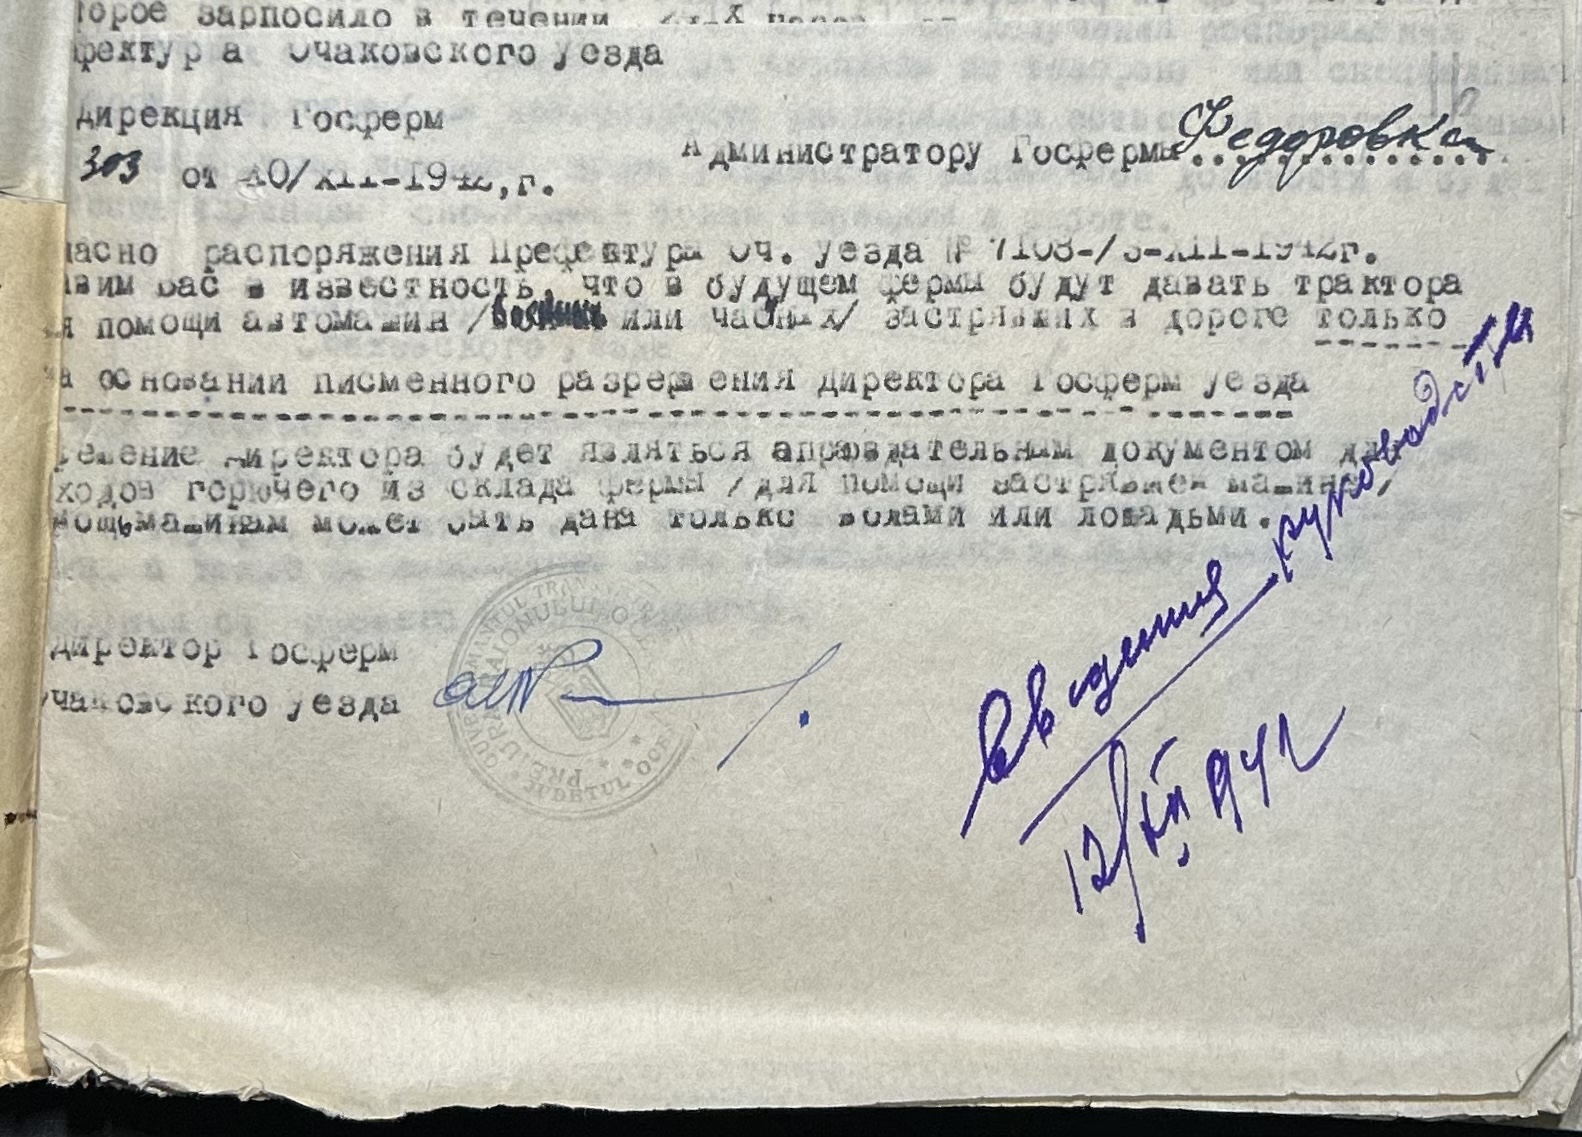 торое зарпосило в течении
фектура Очаковского уезда
дирекция Госферм
Администратору Госфермы Федоровка
303 от 10/XII-1942,г.
ласно распоряжения Префектура Оч. уезда № 7108-/3-XII-1942г.
авим Вас в известность, что в будущем фермы будут давать трактора
я помощи автомашин / или часных/ застрявших в дороге только
а основании писменного разрешения Директора Госферм уезда
решение Директора будет являться апровдательным документом для
ходов горючего из склада фермы /для помощи застрявшей машине/
мощь машинам может быть дана только волами или лошадьми.
GUVERNĂMÂNTUL TRANSNISTRIEI
JUDETUL OCEA
Директор Госферм
Очаковского уезда
Сведения руководства
12/XII 942